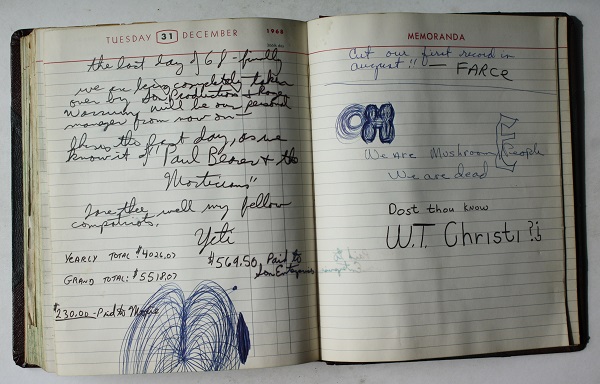 TUESDAY 31 DECEMBER 1968
the last day of 68 - finally
we are being completely taken
over by Son Productions &
Warning will be our personal
manager from now on -
Thus the first day, as we
know it of Paul Bearer & the
Morticians"
Fare thee well my fellow
compatriots.
Yeti
YEARLY TOTAL $4026.07
$569.50, Paid to
Son Enterprises
GRAND TOTAL: $5518.07
$230.00 - Paid to
MEMORANDA
Cut our first record in
august!! — FARCE
We Are Mushroom People
We are dead
Dost thou know
W.T. Christi ?!